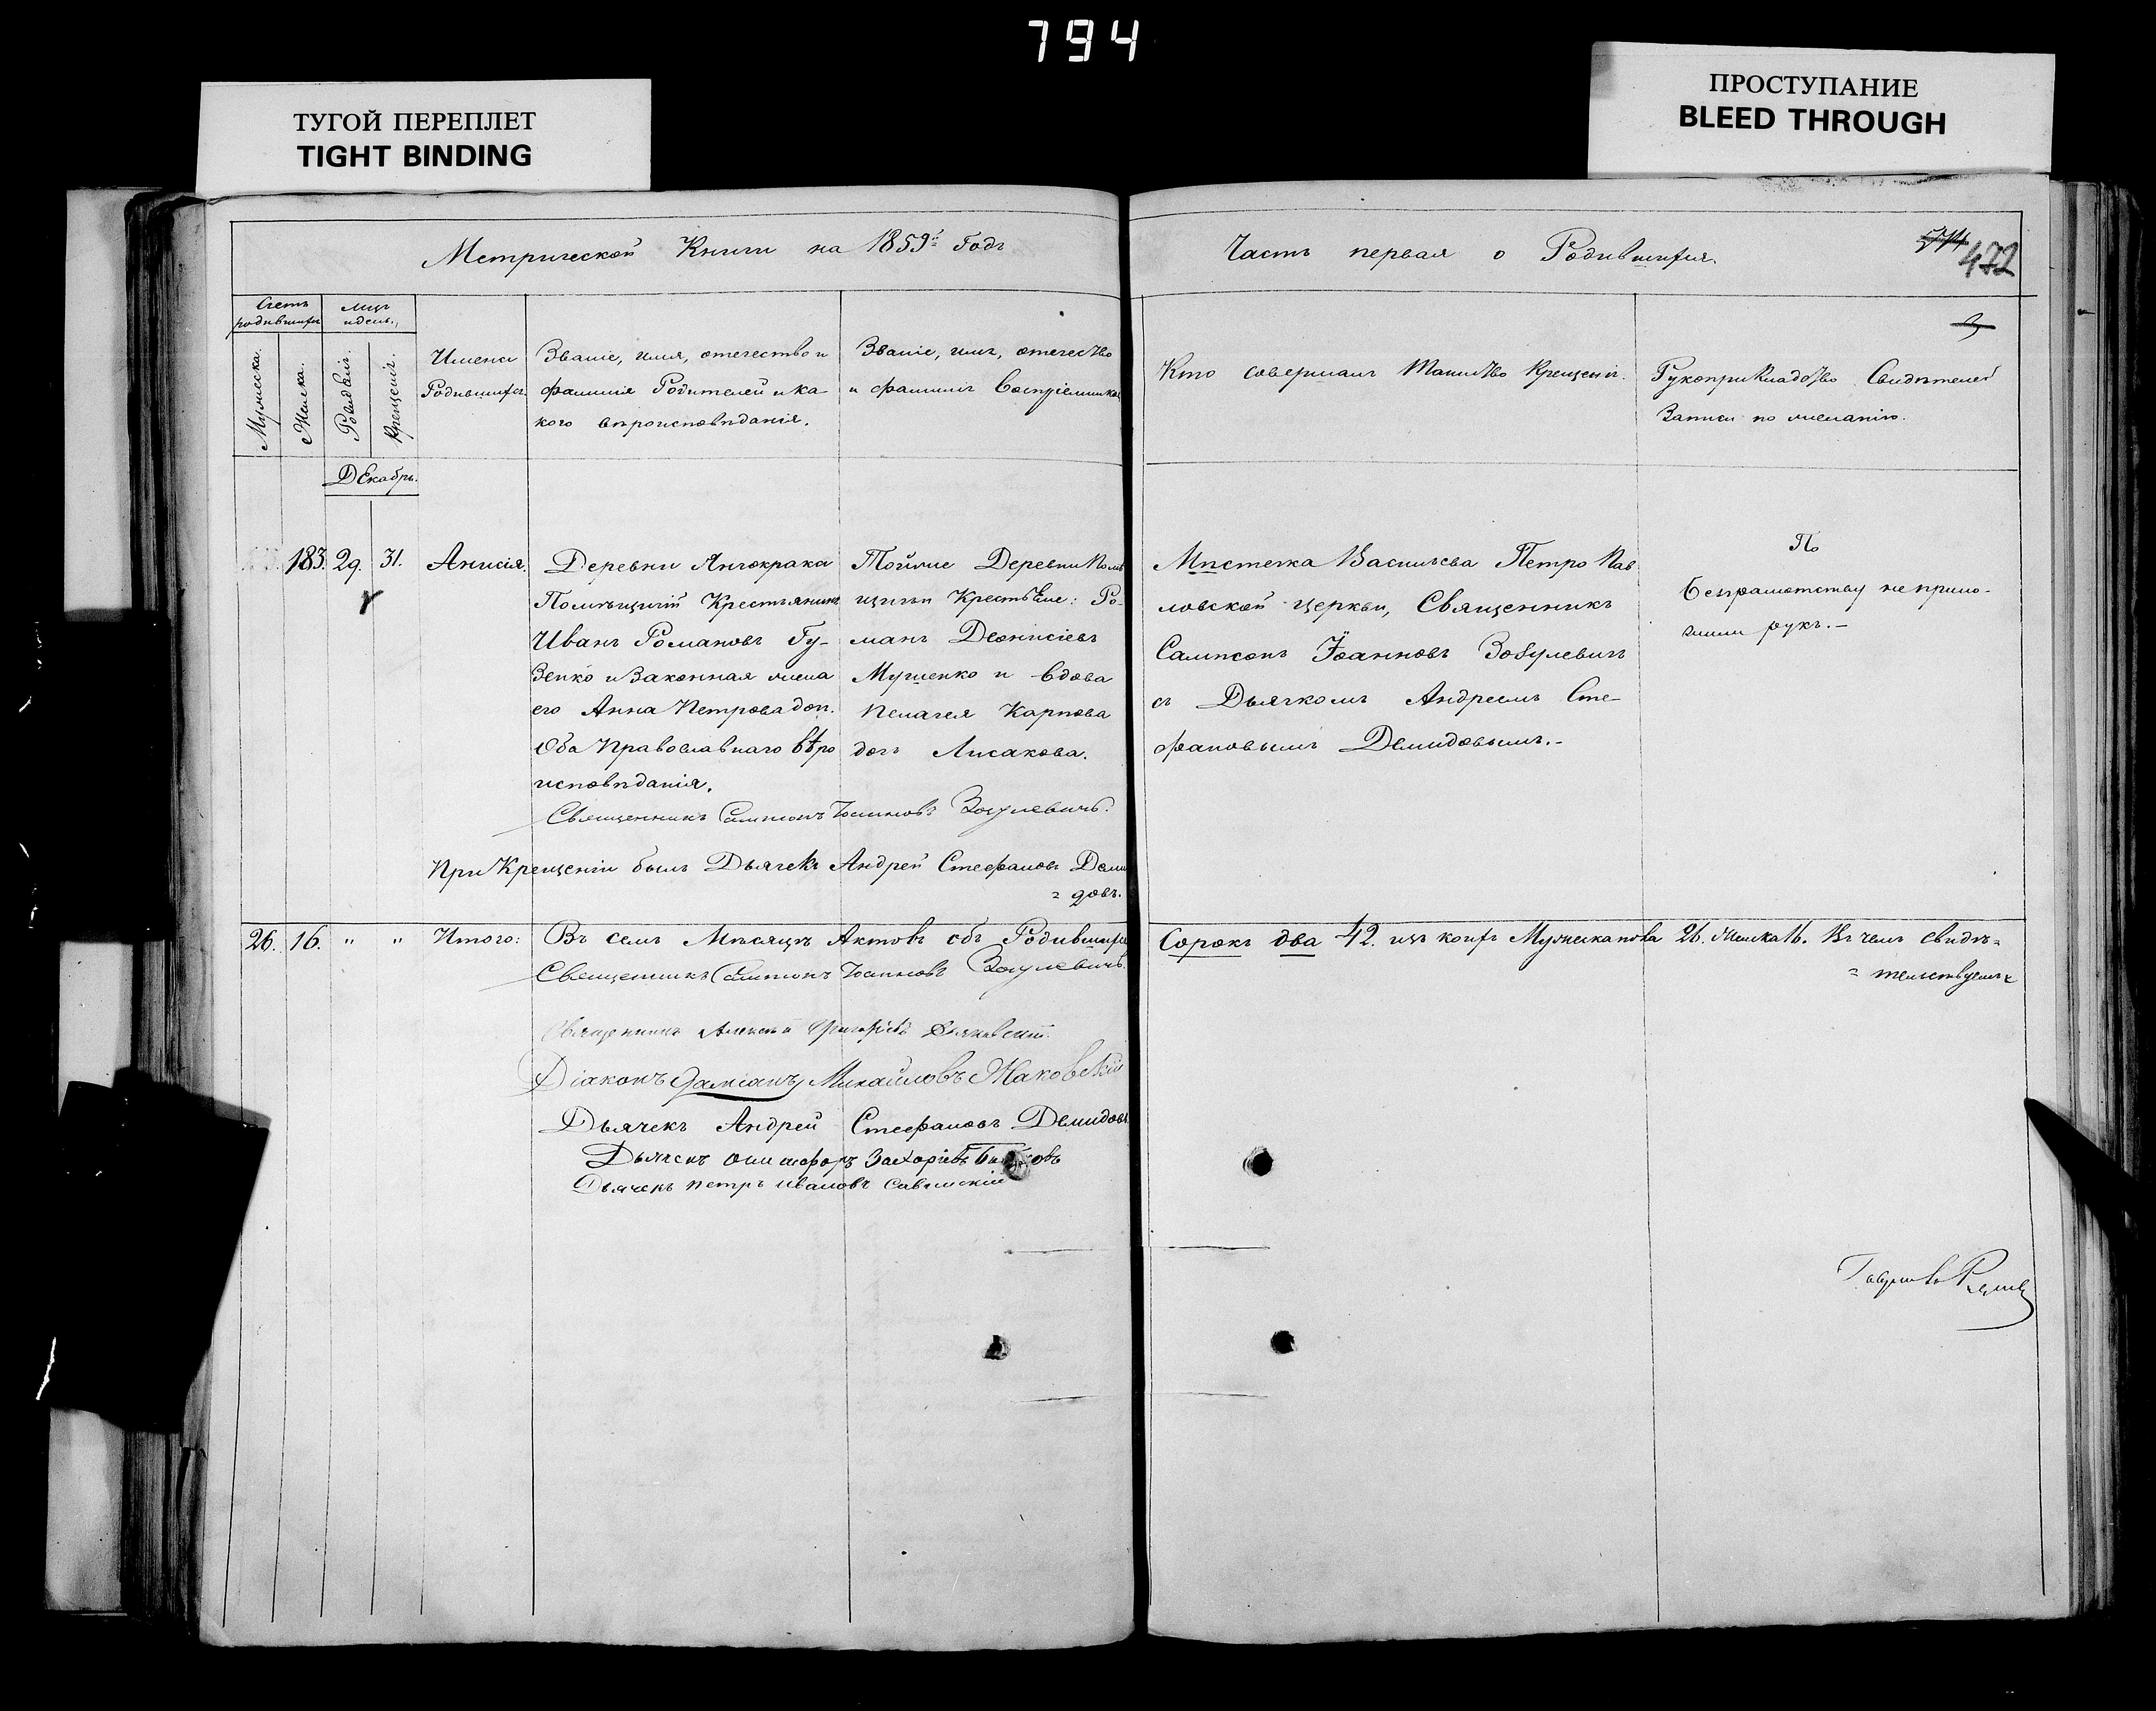 794
ТУГОЙ ПЕРЕПЛЕТ
TIGHT BINDING
ПРОСТУПАНИЕ
BLEED THROUGH
Метрической Книги на 1859й Годъ
Часть первая о Родившихся.
472
Счетъ родившихся
Мужеска.
Женска.
Рожденія.
Крещенія.
Имена
Родившихся.
Званіе, имя, отечество и
фамилія Родителей и ка-
кого вѣроисповѣданія.
Званіе, имя, отечество
и фамилія Воспріемниковъ
Кто совершалъ Таинство Крещенія.
Рукоприкладство Свидѣтелей
Записи по желанію.
Декабрь.
183. 29. 31. Анисія.
Деревни
Помѣщичій Крестьянинъ
Иванъ Романовъ Гу-
зенко и Законная жена
его Анна Петрова доч.
Оба Православнаго вѣро
исповѣданія.
Тойже Деревни Помѣ
щичьи Крестьяне: Ро-
манъ Деонисіевъ
Мушенко и вдова
Пелагея Карпова
доч Лисакова.
Мѣстечка Васильева Петро Пав
ловской церкви, Священникъ
Сампсонъ Іоанновъ Зобулевичъ
съ Дьячкомъ Андреемъ Сте-
фановымъ Демидовымъ.-
По
безграмотству не прило-
жили рукъ.-
Священникъ Сампсонъ Іоанновъ
При Крещеніи былъ Дьячекъ Андрей Стефановъ Деми
= довъ.
26. 16. " " Итого: Въ семъ Мѣсяцѣ Актовъ объ Родившихся
Сорокъ два 42. изъ коихъ Мужеска пола 26. Женска 16. Въ чемъ свидѣ=
= тельствуемъ
Священникъ Сампсонъ Іоанновъ
Священникъ Алексѣй Григорьевъ
Діаконъ Даміанъ Михайловъ Жаковскій
Дьячекъ Андрей Стефановъ Демидовъ
Дьячекъ Захоріевъ
Дьячекъ Петръ Ивановъ